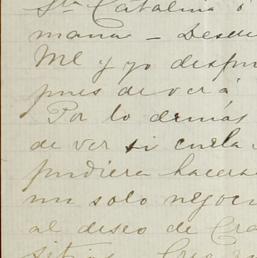 Sta Catalina ó
mana - Desde
Me y yo despu
pues de ver á
Por lo demás
de ver si cuela
pudiera hacers
un solo negoci
al deseo de Cra
sitios